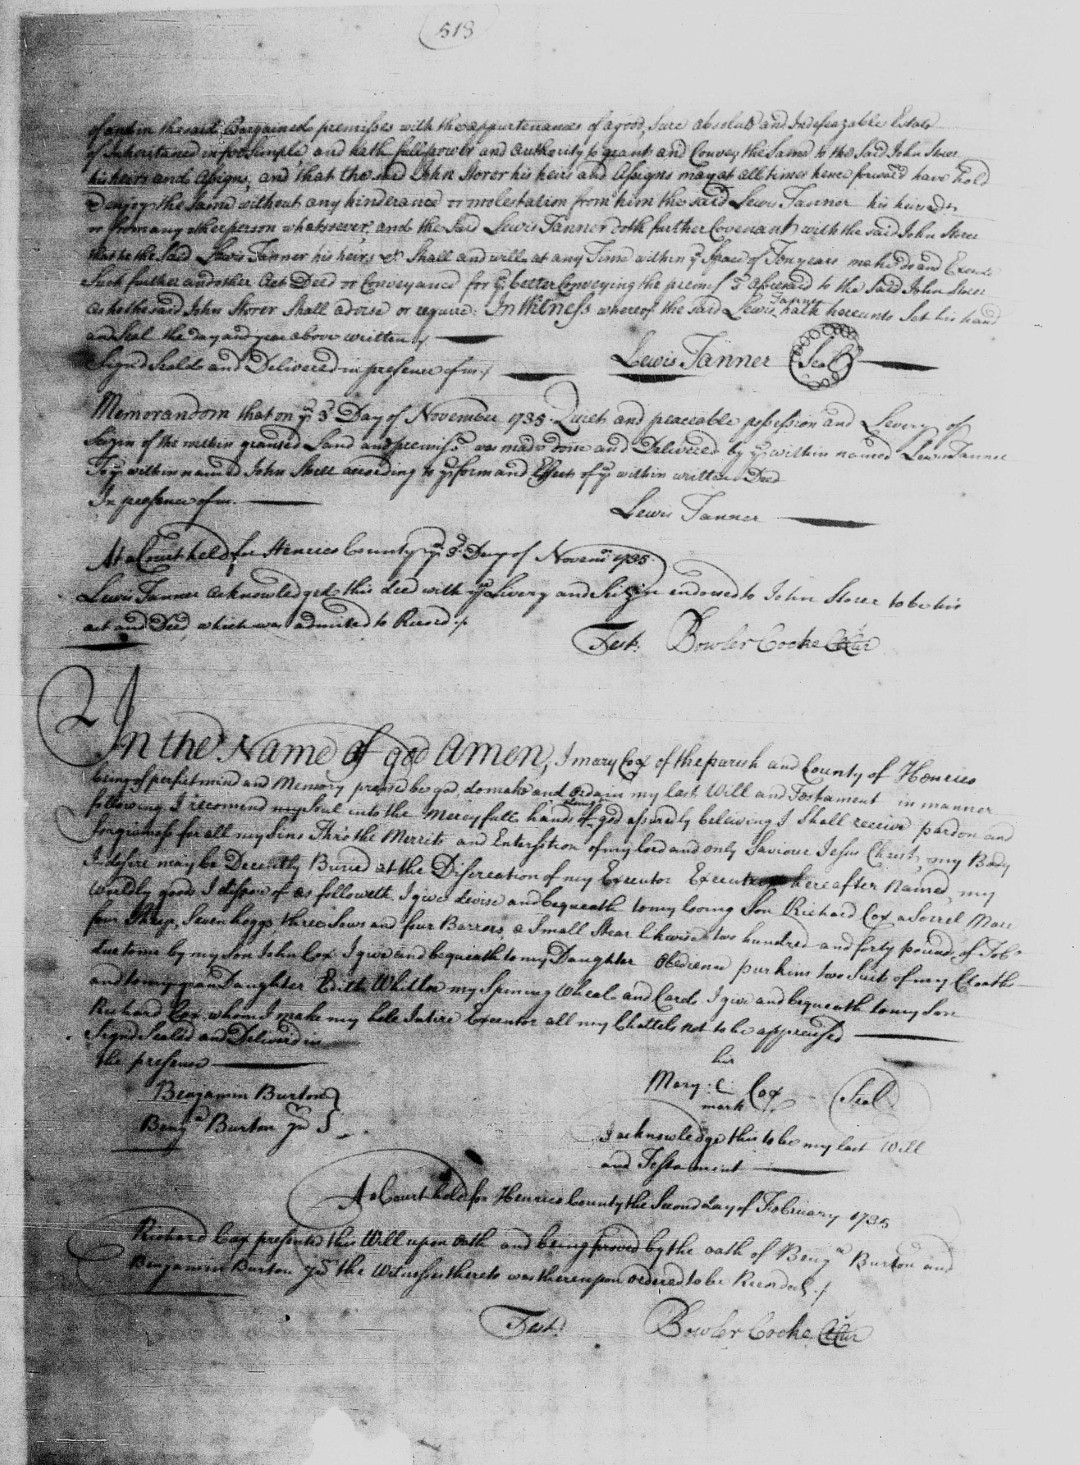 518
of and in the said Bargained premisses with the appurtenances of a good, Sure absolute and Indefeazable Estate
of Inheritance in fee Simple and hath full power and authority to grant and Convey the Same to the Said John Storer
his heirs and assigns, and that the said John Storer his heirs and assigns may at all times hence forward have hold
& enjoy the same without any hinderance or molestation from him the said Lewis Tanner his heirs &c
or from any other person whatsoever, and the Said Lewis Tanner doth further Covenant with the said John Storer
that he the Said Lewis Tanner his heirs &c Shall and will at any Time within ye Space of Ten years make do and Execute
Such further and other Act Deed or Conveyance for ye better Conveying the premises aforesaid to the Said John Storer
as he the said John Storer Shall advise or require: In Witness whereof the said Lewis Tanner hath hereunto Set his hand
and Seal the day and year above written
Lewis Tanner (Seal)
Signd Seald and Delivered in presence of us
Memorandom that on ye 3d Day of November 1735. Quiet and peaceable possession and Livery of
Seizin of the within granted Land and premises was made done and Delivered by ye within named Lewis Tanner
To ye within named John Storer according to ye form and Effect of ye within written Deed
In presence of us
Lewis Tanner
At a Court held for Henrico County ye 3d Day of Novem 1735.
Lewis Tanner acknowledged this deed with ye Livery and Seizin endorsed to John Storer to be his
act and Deed which was admitted to Record
Test: Bowler Cocke Cl Cur
In the Name of god Amen, I mary Cox of the parish and County of Henrico
being of perfect mind and Memory praise be god, do make and ordain my last Will and Testament in manner
following, I recomend my Soul into the Mercyfull hands of god asuredly believing I Shall receive pardon and
forgivness for all my Sins Thro the Merrits and Intersestion of my lord and only Saviour Jesus Christ, my Body
I desire may be Decently Buried at the Discreation of my Executor hereafter Named, my
worldly goods I dispose of as followeth, I give devise and bequeath to my loving Son Richard Cox a Sorrel Mare
four Sheep, Seven hoggs, three Sows and four Barrows, a Small Stear likewise two hundred and forty pounds of Tobo
due to me by my Son John Cox I give and bequeath to my Daughter Obedience purkins two Suits of my Cloath
and to my gran Daughter Edith Whitloe my Spining Wheal and Cards I give and bequeath to my Son
Richard Cox whom I make my hole Intire Executor all my Chattels not to be appraised
Signd Sealed and Deliverd in
the presence
her
Mary C Cox (Seal)
mark
Benjamin Burton
Benja Burton Junr
I acknowledge this to be my last Will
and Testament
At a Court held for Henrico County the Second day of February 1735
Richard Cox presented this Will upon oath and being proved by the oath of Benja Burton and
Benjamin Burton Junr the Witnesses thereto was thereupon ordered to be Recorded
Test: Bowler Cocke Cl Cur